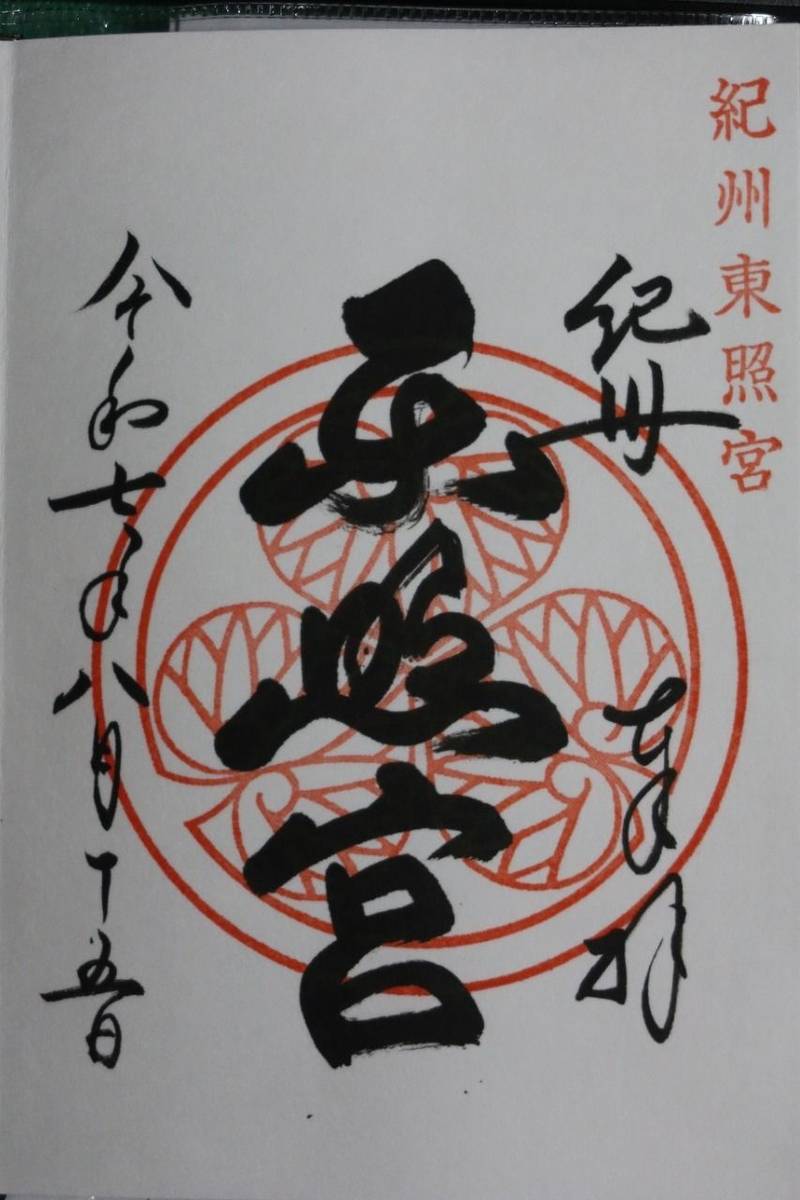 紀州東照宮
紀州
奉拝
東照宮
令和七年八月十五日